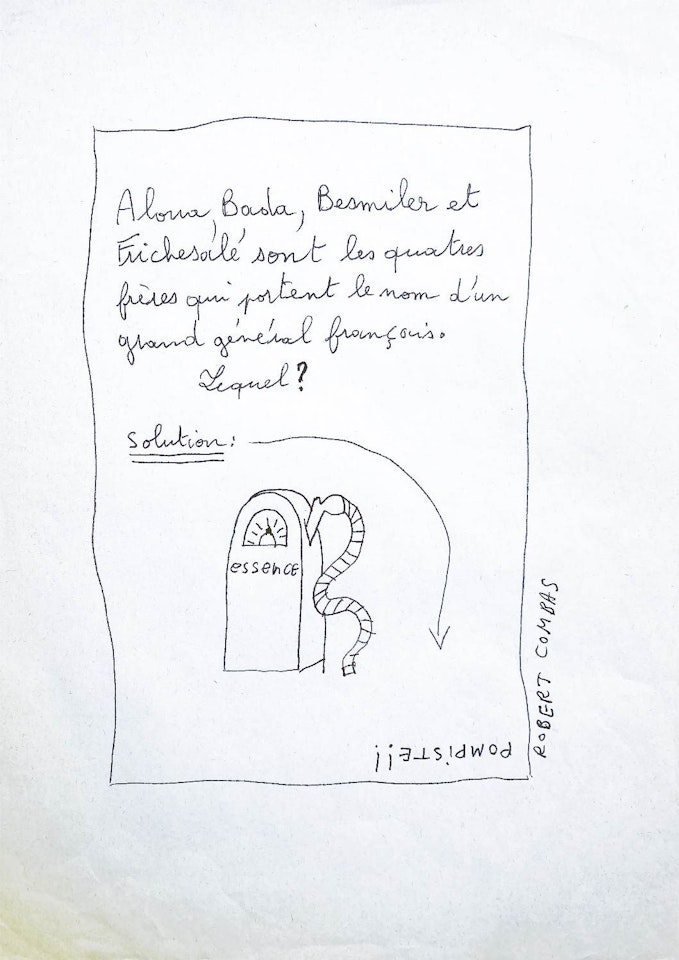 Aloua, Bada, Besmiler et
Frichesalé sont les quatres
frères qui portent le nom d'un
grand général françois.
Lequel?
Solution:
essence
POMPISTE!!
ROBERT COMBAS